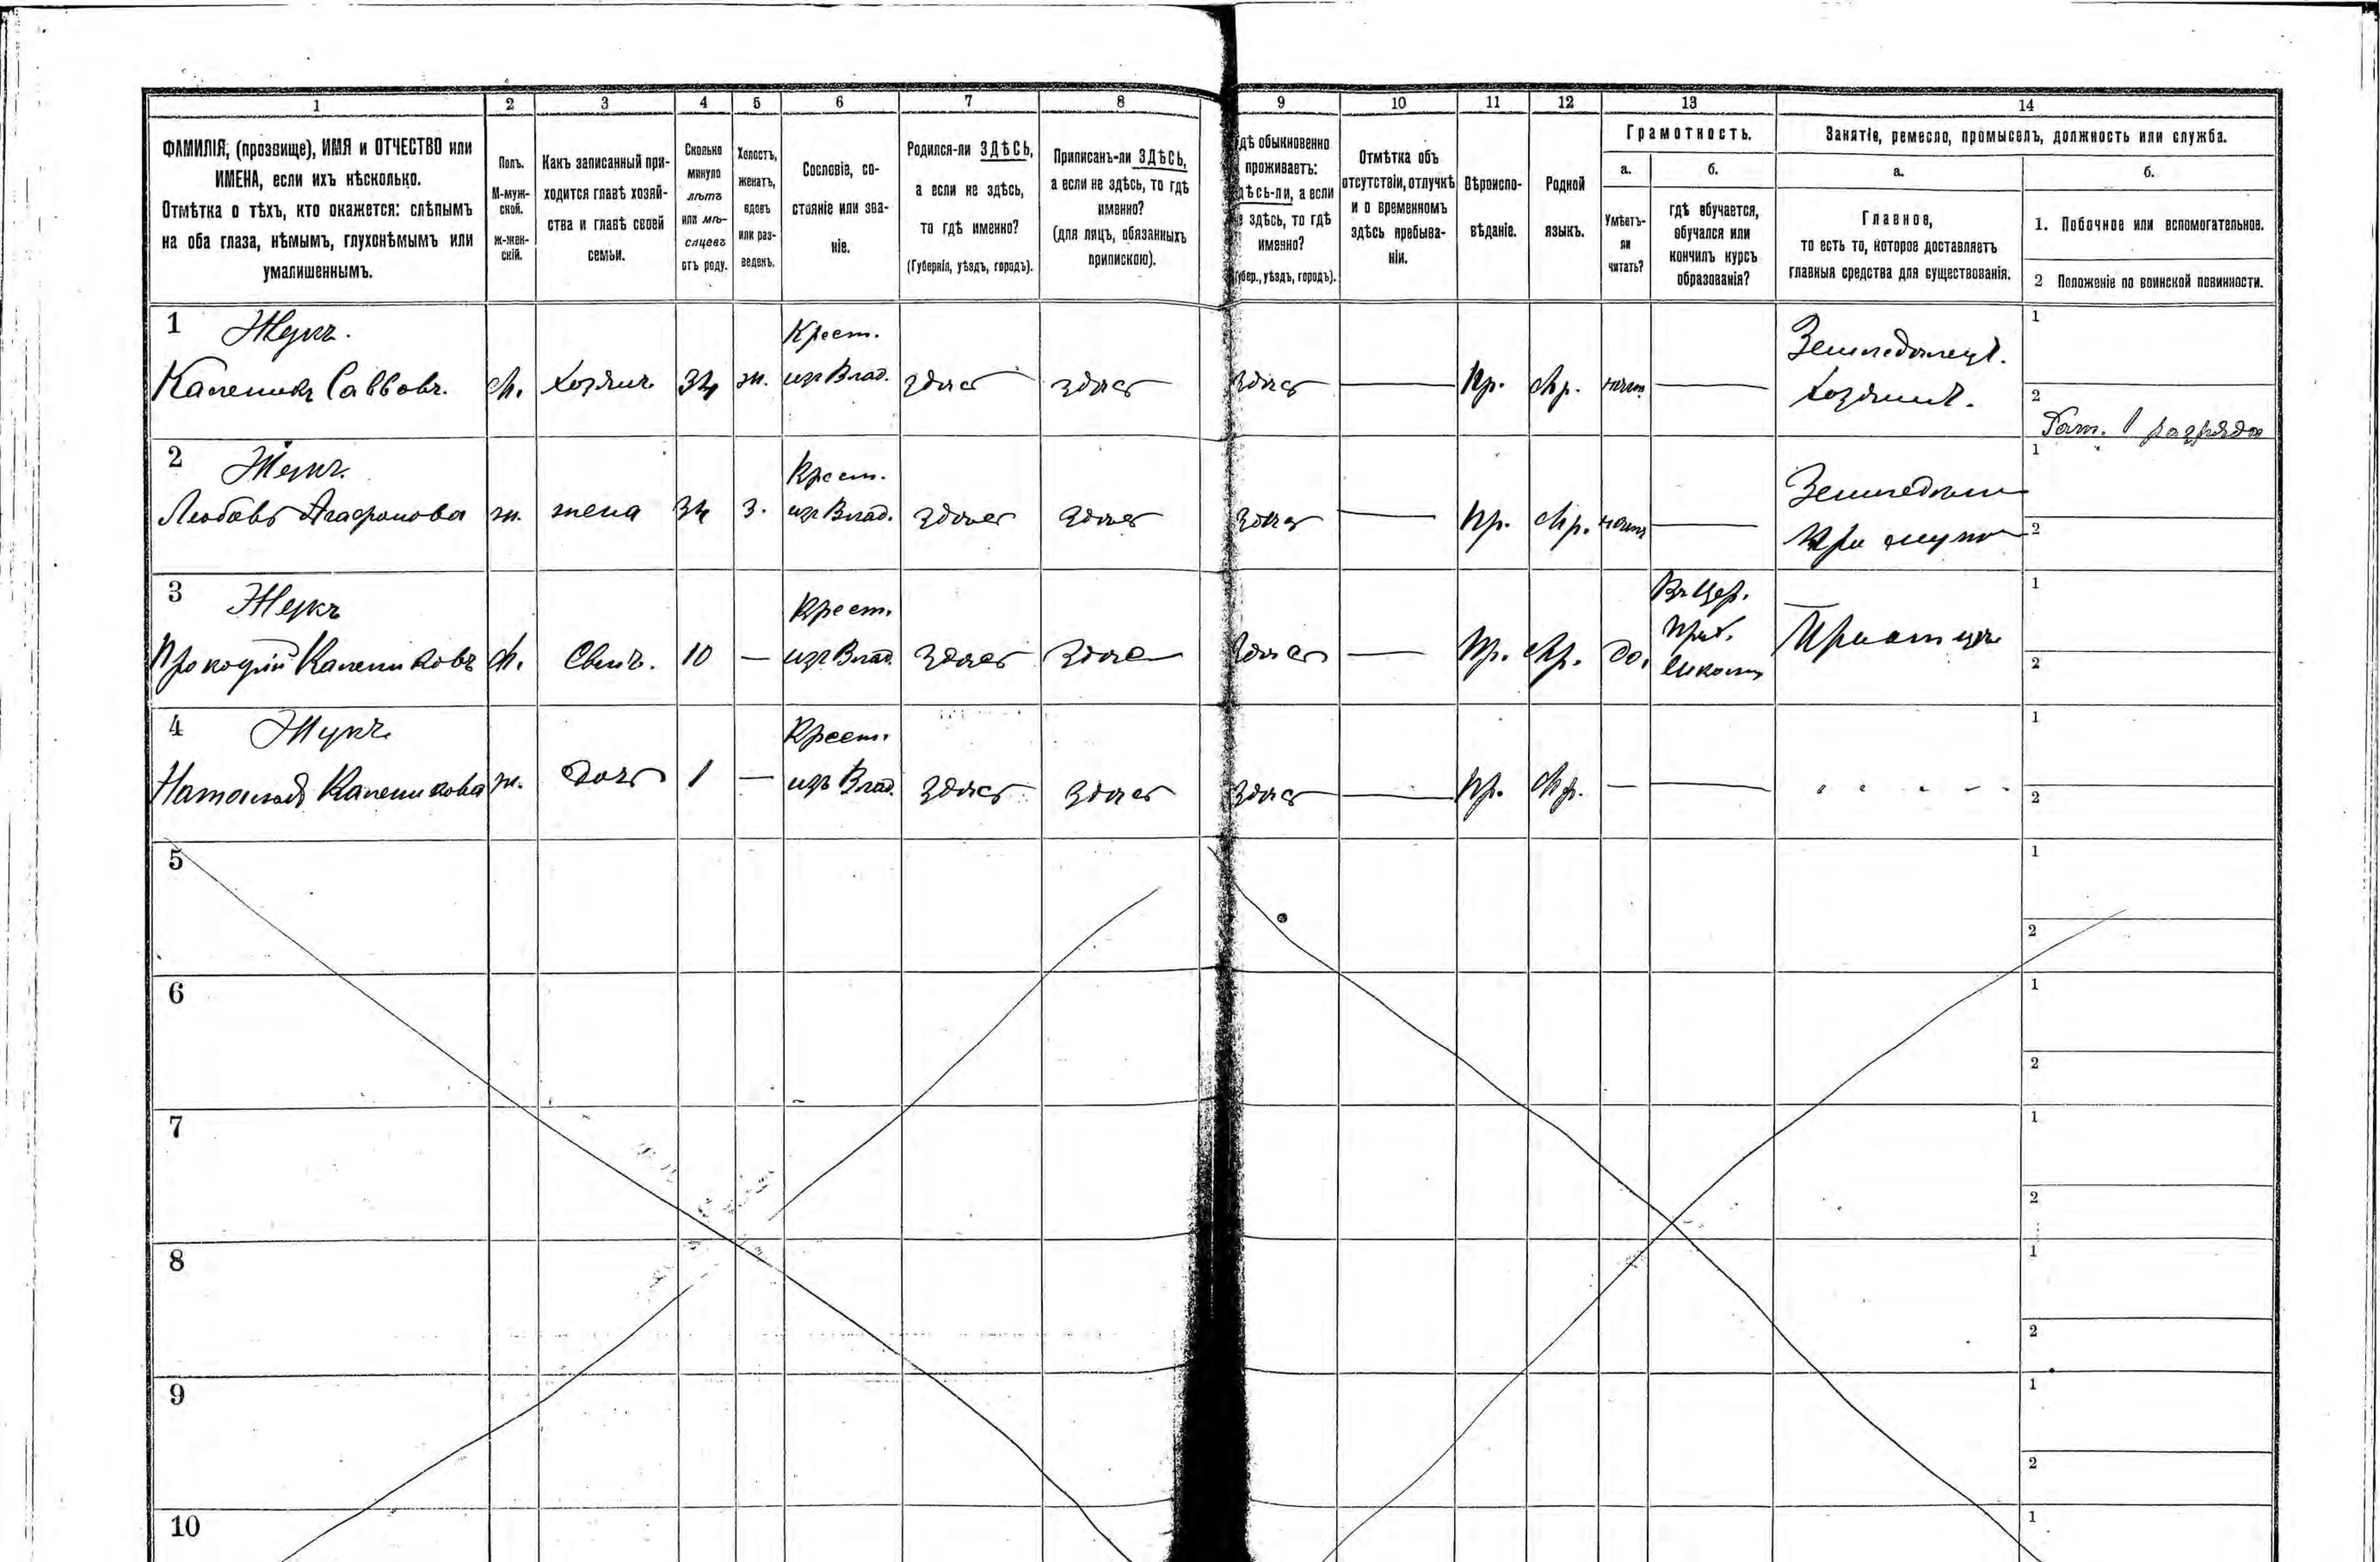 1 2 3 4 5 6 7 8 9 10 11 12 13 14
ФАМИЛІЯ, (прозвище), ИМЯ и ОТЧЕСТВО или
ИМЕНА, если ихъ нѣсколько.
Отмѣтка о тѣхъ, кто окажется: слѣпымъ
на оба глаза, нѣмымъ, глухонѣмымъ или
умалишеннымъ.
Полъ.
М-муж-
ской.
Ж-жен-
скій.
Какъ записанный при-
ходится главѣ хозяй-
ства и главѣ своей
семьи.
Сколько
минуло
лѣтъ
или мѣ-
сяцевъ
отъ роду.
Холостъ,
женатъ,
вдовъ
или раз-
веденъ.
Сословіе, со-
стояніе или зва-
ніе.
Родился-ли ЗДѢСЬ,
а если не здѣсь,
то гдѣ именно?
(Губернія, уѣздъ, городъ).
Приписанъ-ли ЗДѢСЬ,
а если не здѣсь, то гдѣ
именно?
(для лицъ, обязанныхъ
припискою).
дѣ обыкновенно
проживаетъ:
дѣсь-ли, а если
е здѣсь, то гдѣ
именно?
убер., уѣздъ, городъ).
Отмѣтка объ
отсутствіи, отлучкѣ
и о временномъ
здѣсь пребыва-
ніи.
Вѣроиспо-
вѣданіе.
Родной
языкъ.
Грамотность.
а.
Умѣетъ-
ли
читать?
б.
гдѣ обучается,
обучался или
кончилъ курсъ
образованія?
Занятіе, ремесло, промыселъ, должность или служба.
а.
Главное,
то есть то, которое доставляетъ
главныя средства для существованія.
б.
1. Побочное или вспомогательное.
2 Положеніе по воинской повинности.
1 Жукъ. Крест. Земледѣлецъ. 1
Каленикъ Саввовъ. М. Хозяинъ 34 ж. изъ Влад. здѣсь здѣсь здѣсь — Пр. Мр. нѣтъ — Хозяинъ. 2
Рат. 1 разряда
2 Жукъ. Крест. 1
Любовь Агафонова ж. жена 34 З. изъ Влад. здѣсь здѣсь здѣсь — Пр. Мр. нѣтъ — При мужѣ 2
3 Жукъ Крест. Въ Цер. 1
Прокофій Калениковъ М. Сынъ. 10 — изъ Влад. здѣсь здѣсь здѣсь — Пр. Мр. да. Прих. При отцѣ 2
Школѣ
4 Жукъ Крест. 1
Наталья Каленикова ж. дочь 1 — изъ Влад. здѣсь здѣсь здѣсь — Пр. Мр. — — 2
5 1
2
6 1
2
7 1
2
8 1
2
9 1
2
10 1